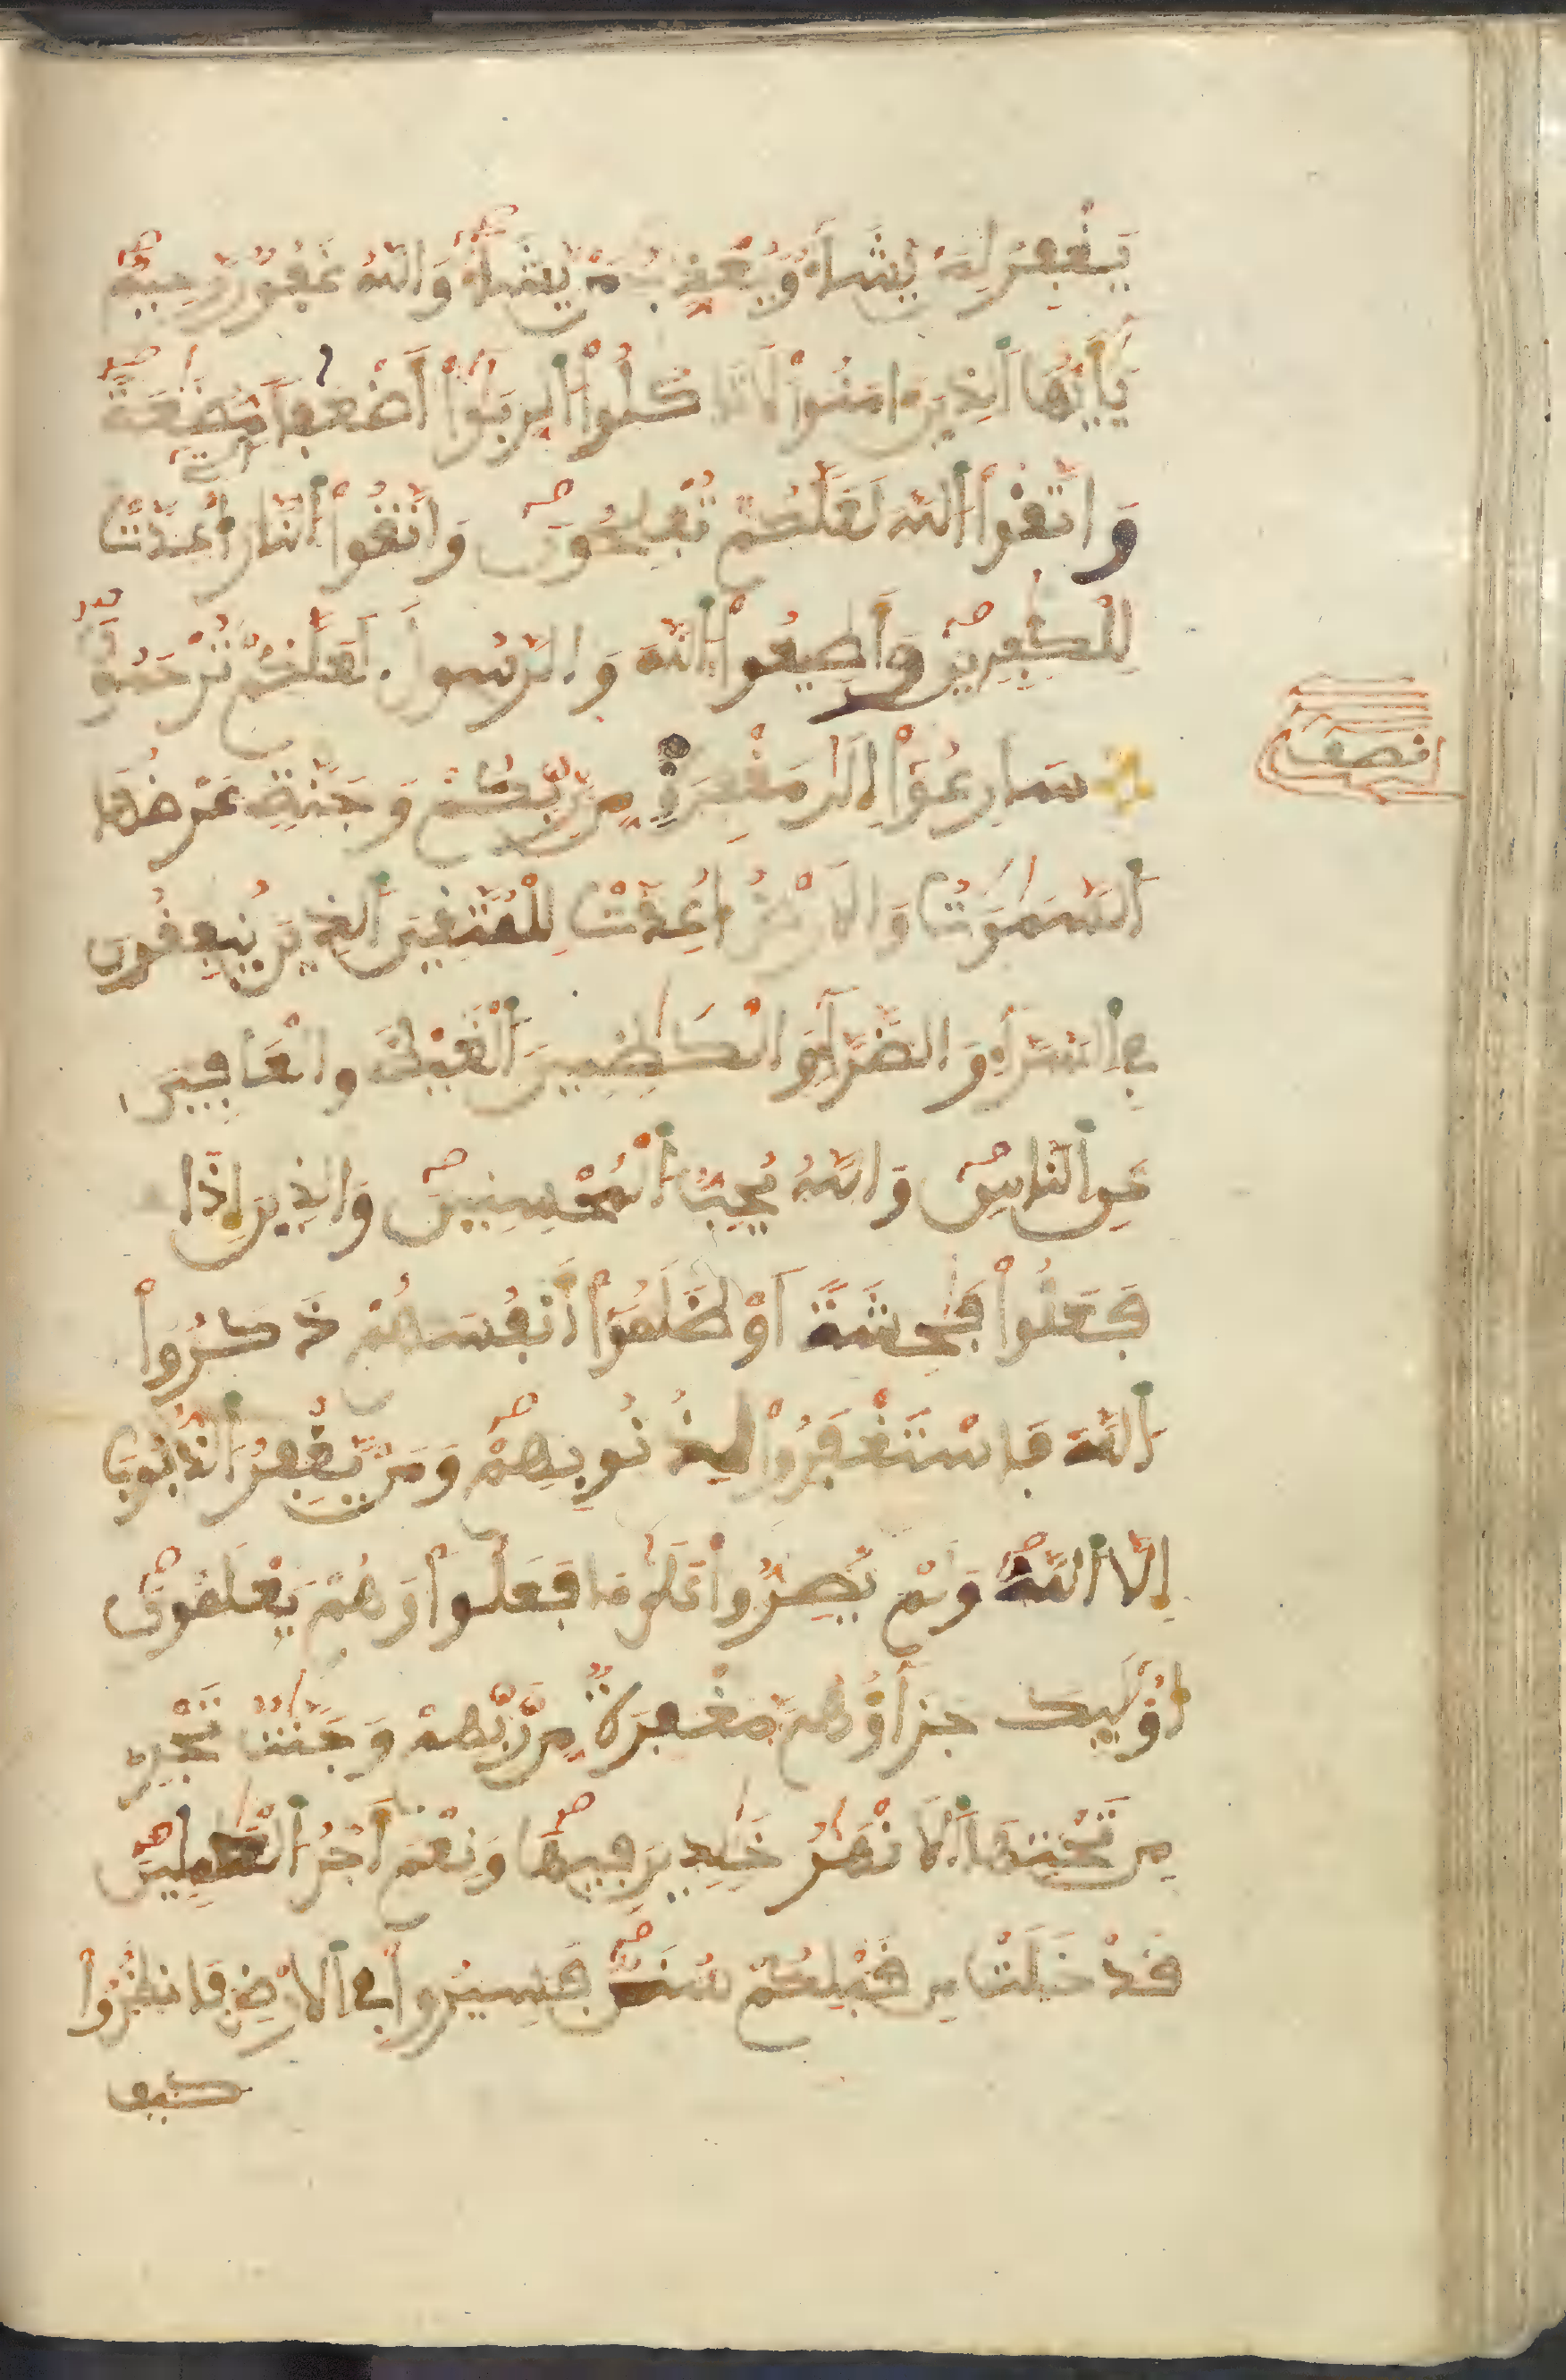 يَغْفِرُ لِمَنْ يَّشَآءُ وَيُعَذِّبُ مَنْ يَّشَآءُ وَاللَّهُ غَفُورٌ رَّحِيمٌ
يَٰٓأَيُّهَا اَ۬لذِينَ ءَامَنُوا۟ لَا تَاكُلُوا۟ اُ۬لرِّبَوٰٓا۟ أَضْعَٰفاً مُّضَٰعَفَةً
وَاتَّقُوا۟ اُ۬للَّهَ لَعَلَّكُمْ تُفْلِحُونَ وَاتَّقُوا۟ اُ۬لنَّارَ اَ۬لتِے أُعِدَّتْ
لِلْكَٰفِرِينَ وَأَطِيعُوا۟ اُ۬للَّهَ وَالرَّسُولَ لَعَلَّكُمْ تُرْحَمُونَ
سَارِعُوٓا۟ إِلَىٰ مَغْفِرَةٍ مِّن رَّبِّكُمْ وَجَنَّةٍ عَرْضُهَا
نصف
اَ۬لسَّمَٰوَٰتُ وَالَارْضُ أُعِدَّتْ لِلْمُتَّقِينَ اَ۬لذِينَ يُنفِقُونَ
فِے اِ۬لسَّرَّآءِ وَالضَّرَّآءِ وَالْكَٰظِمِينَ اَ۬لْغَيْظَ وَالْعَافِينَ
عَنِ اِ۬لنَّاسِ وَاللَّهُ يُحِبُّ اُ۬لْمُحْسِنِينَ وَالذِينَ إِذَا
فَعَلُوا۟ فَٰحِشَةً اَوْ ظَلَمُوٓا۟ أَنفُسَهُمْ ذَكَرُوا۟
اُ۬للَّهَ فَاسْتَغْفَرُوا۟ لِذُنُوبِهِمْ وَمَنْ يَّغْفِرُ اُ۬لذُّنُوبَ
إِلَّا اَ۬للَّهُ وَلَمْ يُصِرُّوا۟ عَلَىٰ مَا فَعَلُوا۟ وَهُمْ يَعْلَمُونَ
أُو۟لَٰٓئِكَ جَزَآؤُهُم مَّغْفِرَةٌ مِّن رَّبِّهِمْ وَجَنَّٰتٌ تَجْرِے
مِن تَحْتِهَا اَ۬لَانْهَٰرُ خَٰلِدِينَ فِيهَا وَنِعْمَ أَجْرُ اُ۬لْعَٰمِلِينَ
قَدْ خَلَتْ مِن قَبْلِكُمْ سُنَنٌ فَسِيرُوا۟ فِے اِ۬لَارْضِ فَانظُرُوا۟
كيف